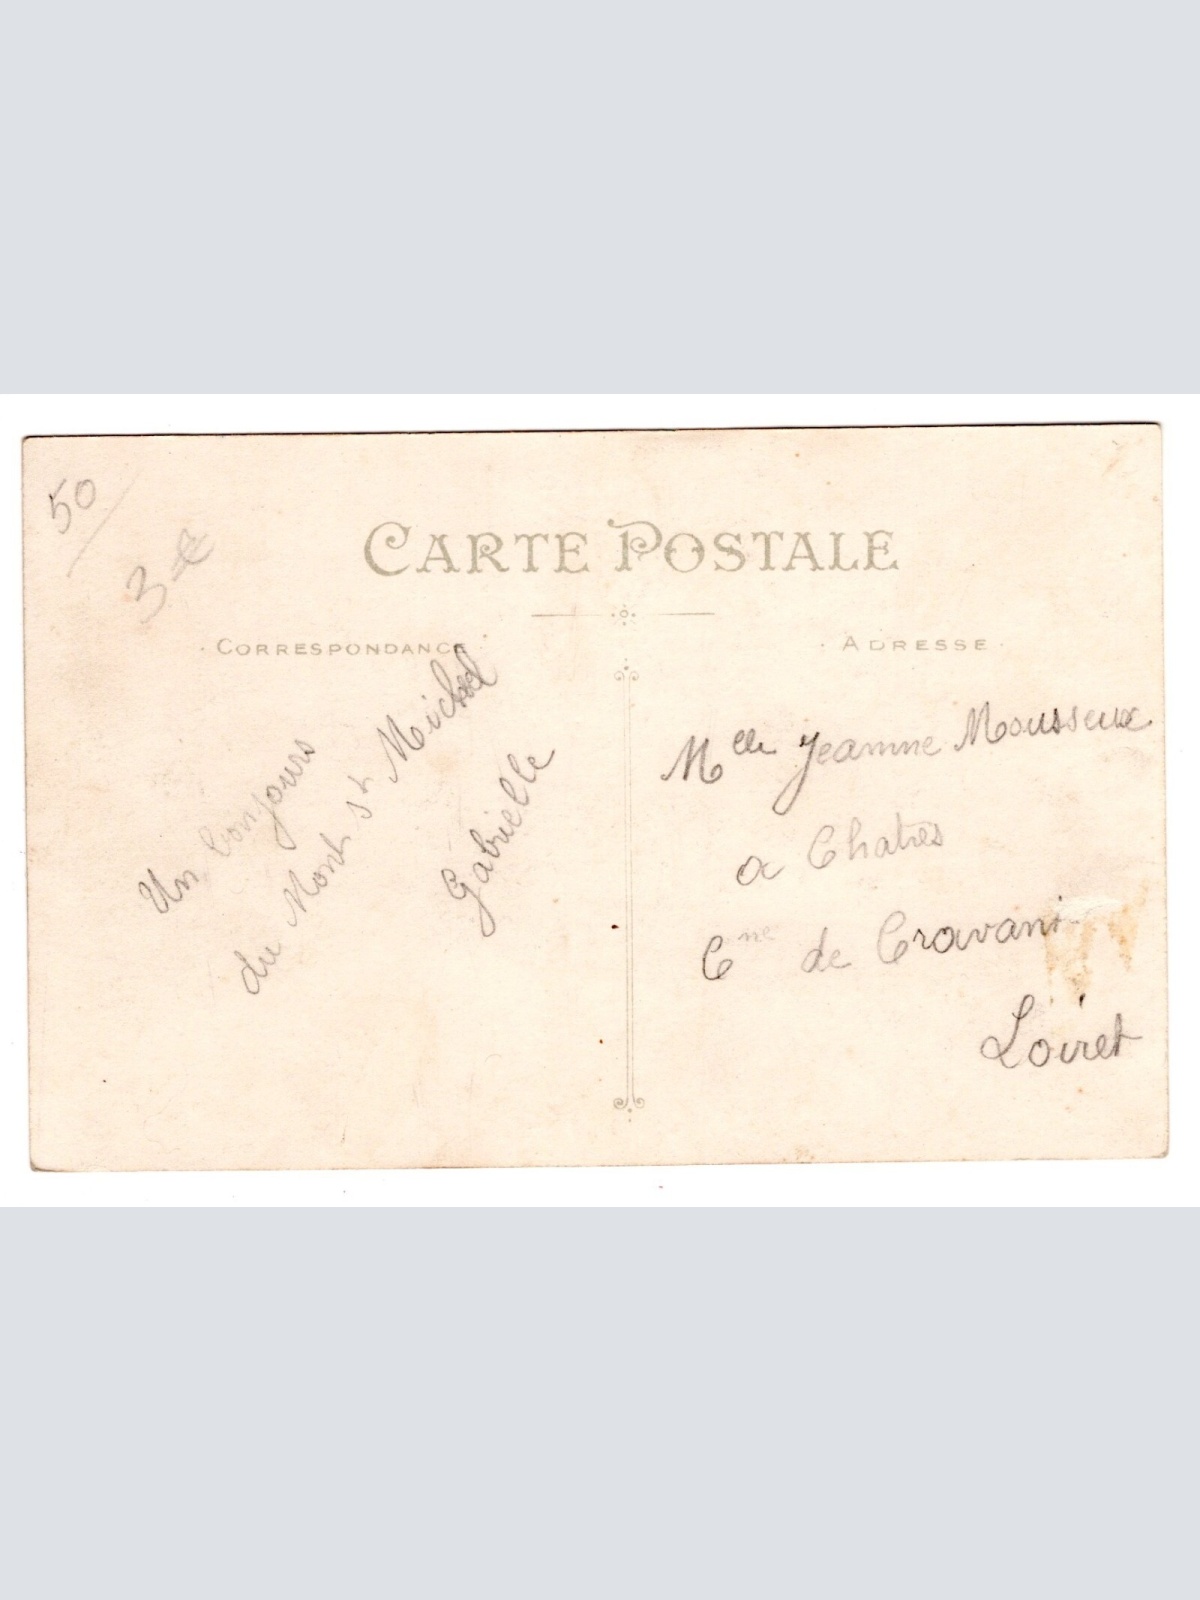 50
3 €
CARTE POSTALE
CORRESPONDANCE
ADRESSE
Un bonjours
du Mont St Michel
Gabrielle
Melle Jeanne Mousseux
a Chatres
Cne de Cravant
Loiret